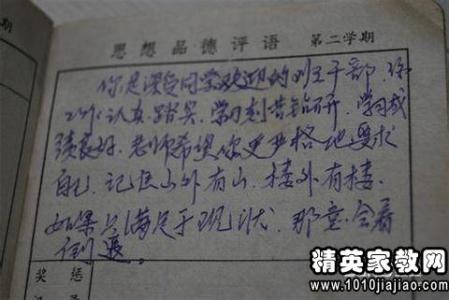 思想品德评语 第二学期
你是深受同学欢迎的班干部 你
工作认真踏实、学习刻苦钻研、学习成
绩良好、老师希望你更严格地要求
自己、记住山外有山、楼外有楼、
如果只满足于现状、那意会着
倒退。
奖 惩
精英家教网
www.1010jiajiao.com